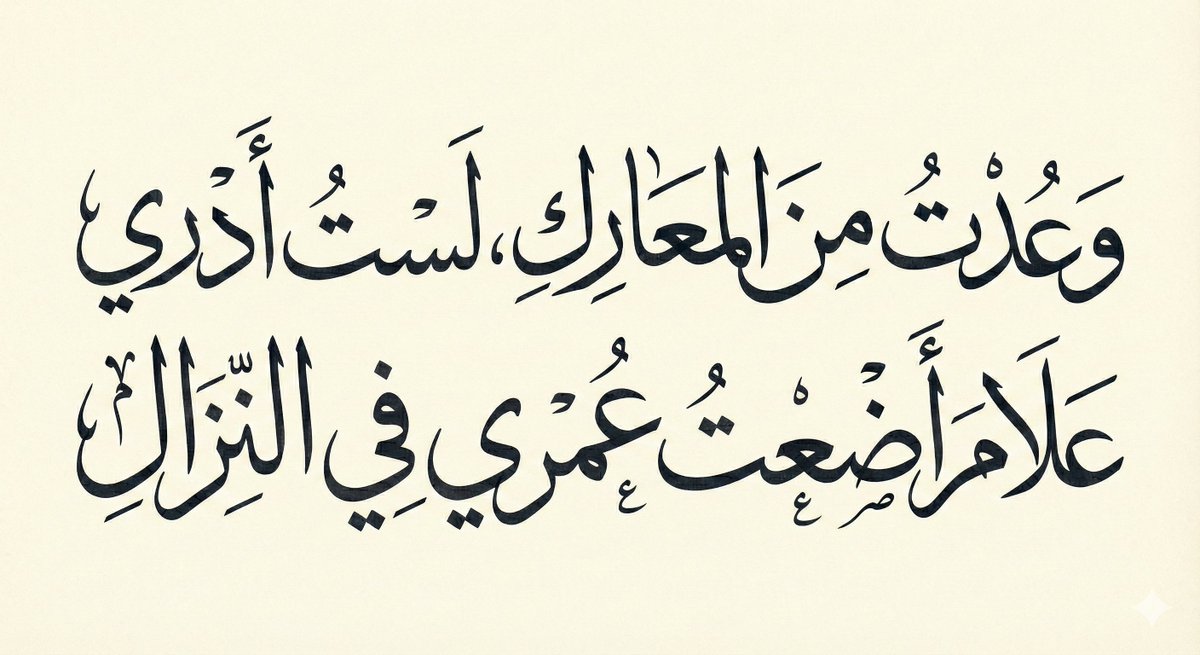 وَعُدْتُ مِنَ المعَارِكِ، لَسْتُ أَدْري
عَلَامَ أَضْعْتُ عُمْري فِي النِّزَالِ